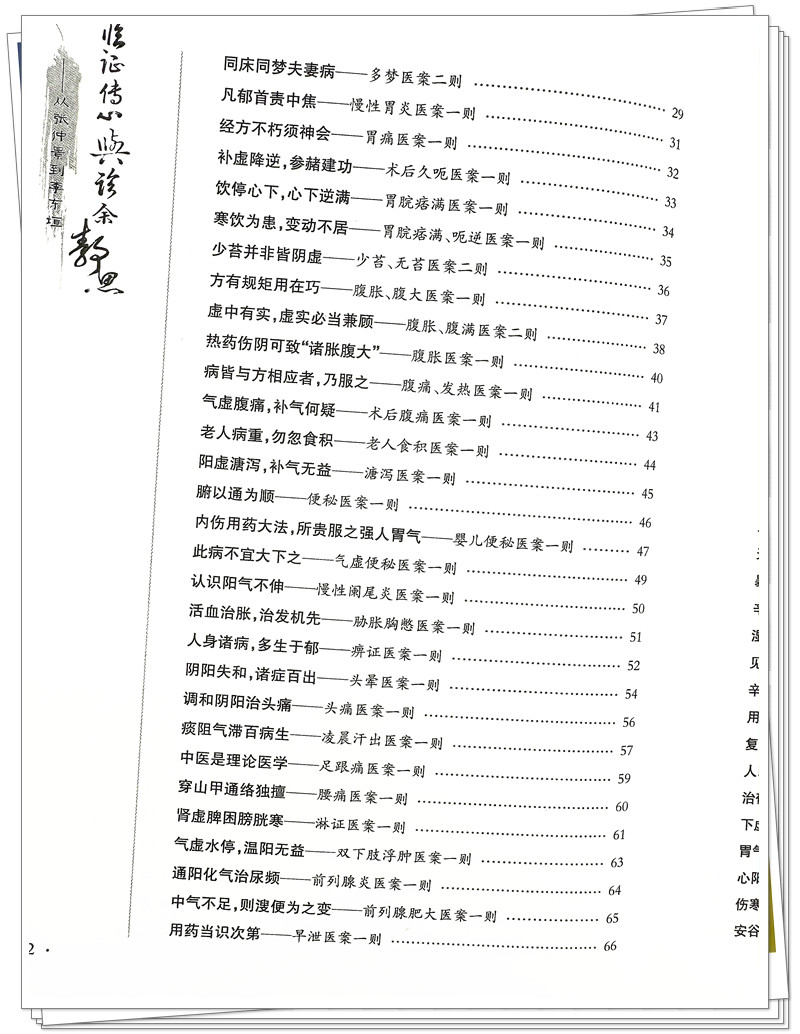 临证传心與诊余静思
——从张仲景到李东垣
同床同梦夫妻病——多梦医案二则 …… 29
凡郁首责中焦——慢性胃炎医案一则 …… 31
经方不朽须神会——胃痛医案一则 …… 32
补虚降逆，参赭建功——术后久呃医案一则 …… 33
饮停心下，心下逆满——胃脘痞满医案一则 …… 34
寒饮为患，变动不居——胃脘痞满、呃逆医案一则 …… 35
少苔并非皆阴虚——少苔、无苔医案二则 …… 36
方有规矩用在巧——腹胀、腹大医案一则 …… 37
虚中有实，虚实必当兼顾——腹胀、腹满医案二则 …… 38
热药伤阴可致“诸胀腹大”——腹胀医案一则 …… 40
病皆与方相应者，乃服之——腹痛、发热医案一则 …… 41
气虚腹痛，补气何疑——术后腹痛医案一则 …… 43
老人病重，勿忽食积——老人食积医案一则 …… 44
阳虚溏泻，补气无益——溏泻医案一则 …… 45
腑以通为顺——便秘医案一则 …… 46
内伤用药大法，所贵服之强人胃气——婴儿便秘医案一则 …… 47
此病不宜大下之——气虚便秘医案一则 …… 49
认识阳气不伸——慢性阑尾炎医案一则 …… 50
活血治胀，治发机先——胁胀胸憋医案一则 …… 51
人身诸病，多生于郁——痹证医案一则 …… 52
阴阳失和，诸症百出——头晕医案一则 …… 54
调和阴阳治头痛——头痛医案一则 …… 56
痰阻气滞百病生——凌晨汗出医案一则 …… 57
中医是理论医学——足跟痛医案一则 …… 59
穿山甲通络独擅——腰痛医案一则 …… 60
肾虚脾困膀胱寒——淋证医案一则 …… 61
气虚水停，温阳无益——双下肢浮肿医案一则 …… 63
通阳化气治尿频——前列腺炎医案一则 …… 64
中气不足，则溲便为之变——前列腺肥大医案一则 …… 65
用药当识次第——早泄医案一则 …… 66
2 ·
见
辛
用
复
人
治
下
胃
心阳
伤寒
安谷